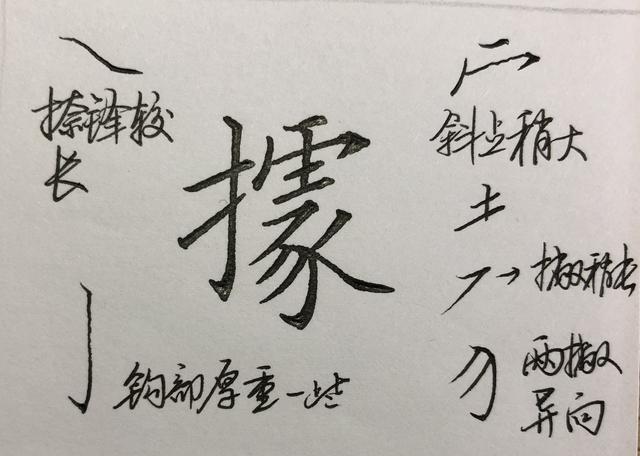 捺锋较
长
據
钩部厚重一些
斜点稍大
撇稍长
两撇
异向